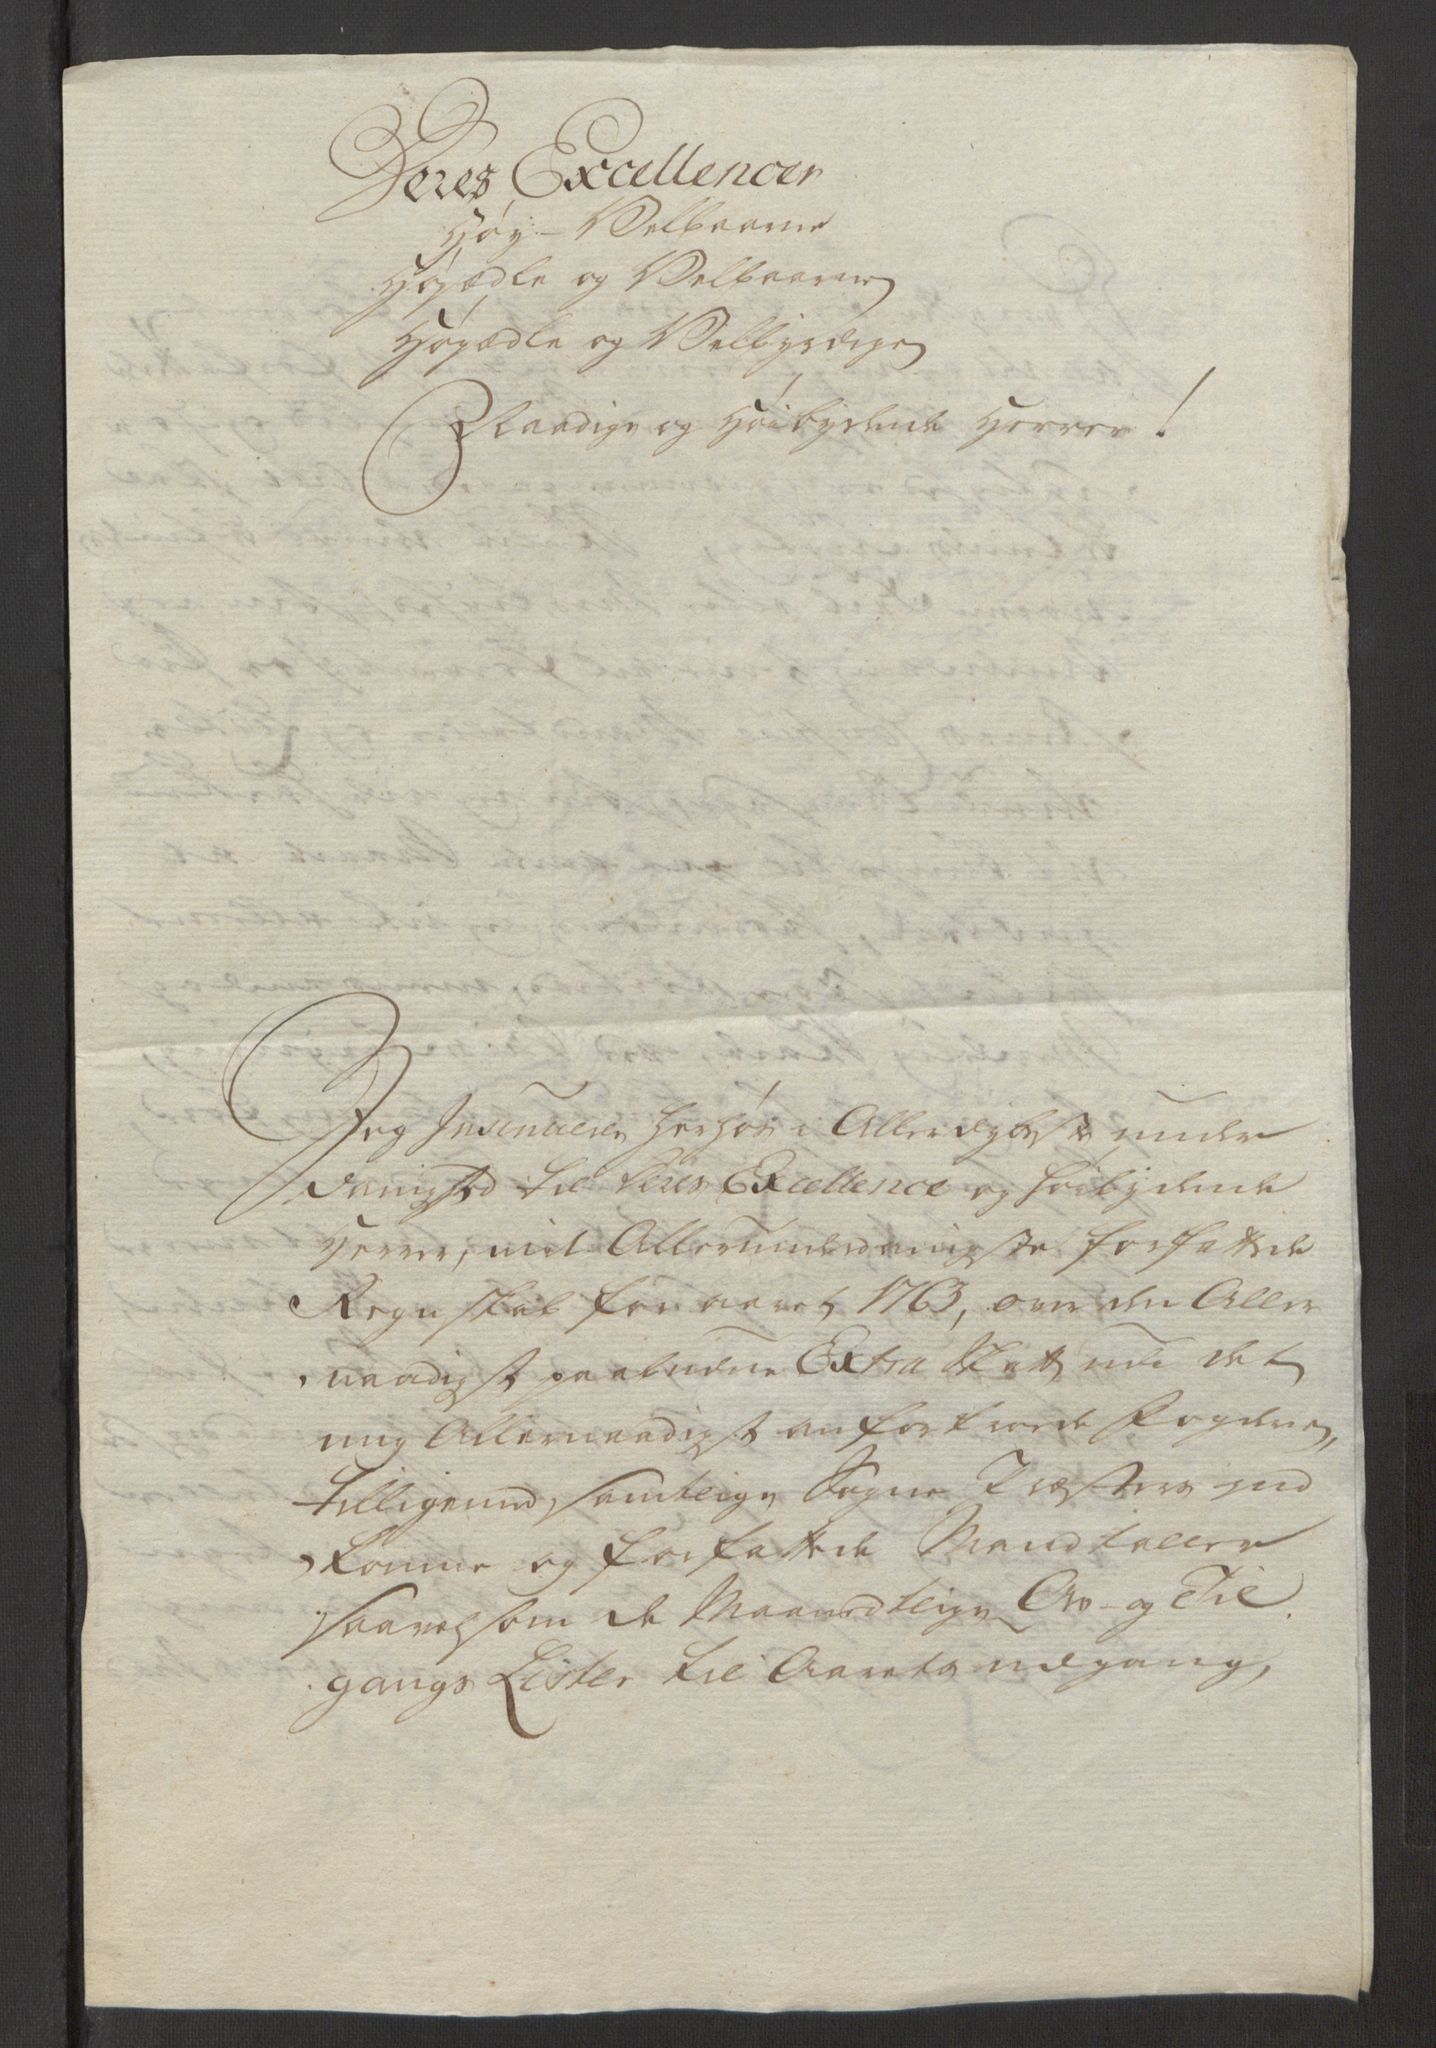 Deres Excellencer
Høy-Velbaarne
Høyædle og Velbaarne
Høyædle og Velbyrdige
Naadige og Høibydende Herrer!
Jeg Insinuerer herhos i Allerdybeste under
danighed til Deres Excellence og høibydende
Herrer, mit Allerunderdanigste forfattede
Regnskab for aaret 1763, over den Aller
naadigst paabudne Extra Skatt udi det
mig Allernaadigst anfortroede Fogderie,
tilligemed samtlige Sogne Præsters ind
komne og forfattede Mandtaller
saavelsom de Maanedlige Av- og Til
gangs Lister til Aarets udgang,